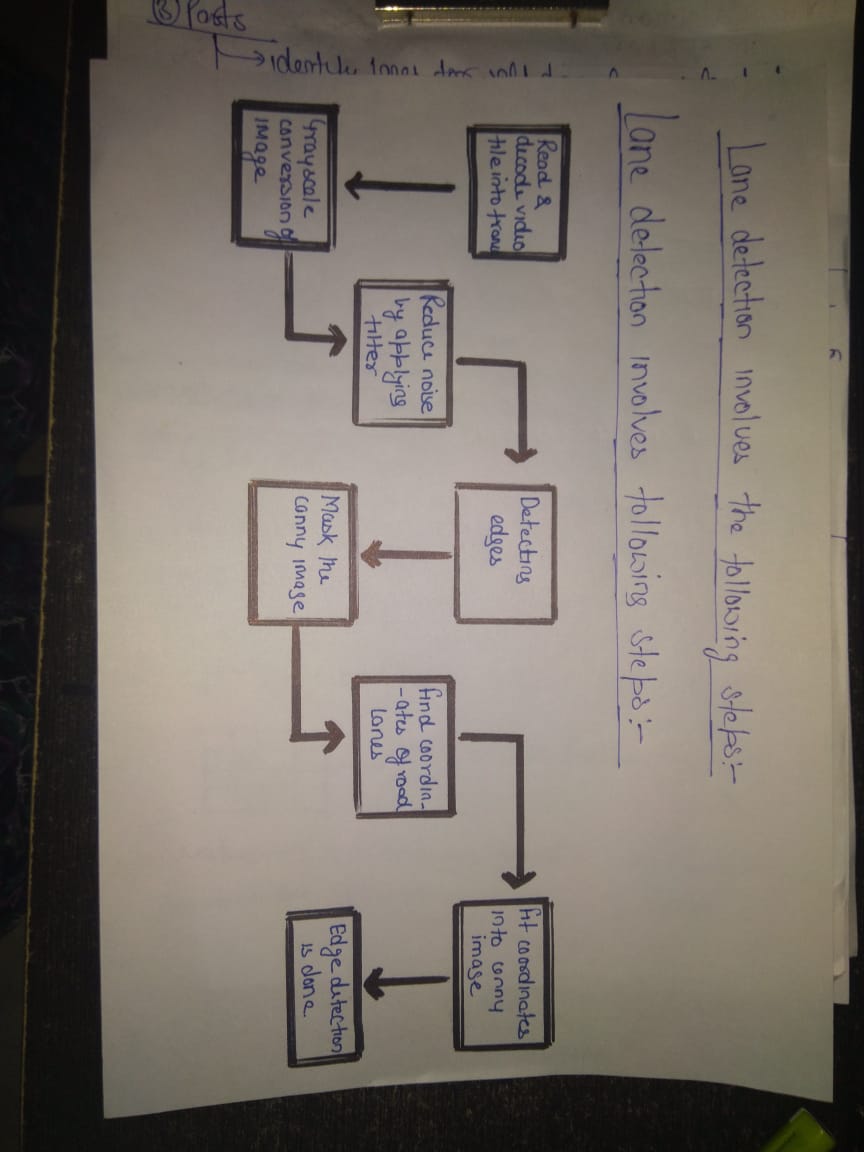 Lane detection involves the following steps:-
Lane detection involves following steps:-
Read &
decode video
file into frame
Grayscale
conversion of
image
Reduce noise
by applying
filter
Detecting
edges
Mask the
canny image
Find coordin-
-ates of road
Lanes
Fit coordinates
into canny
image
Edge detection
is done
(B) Posts